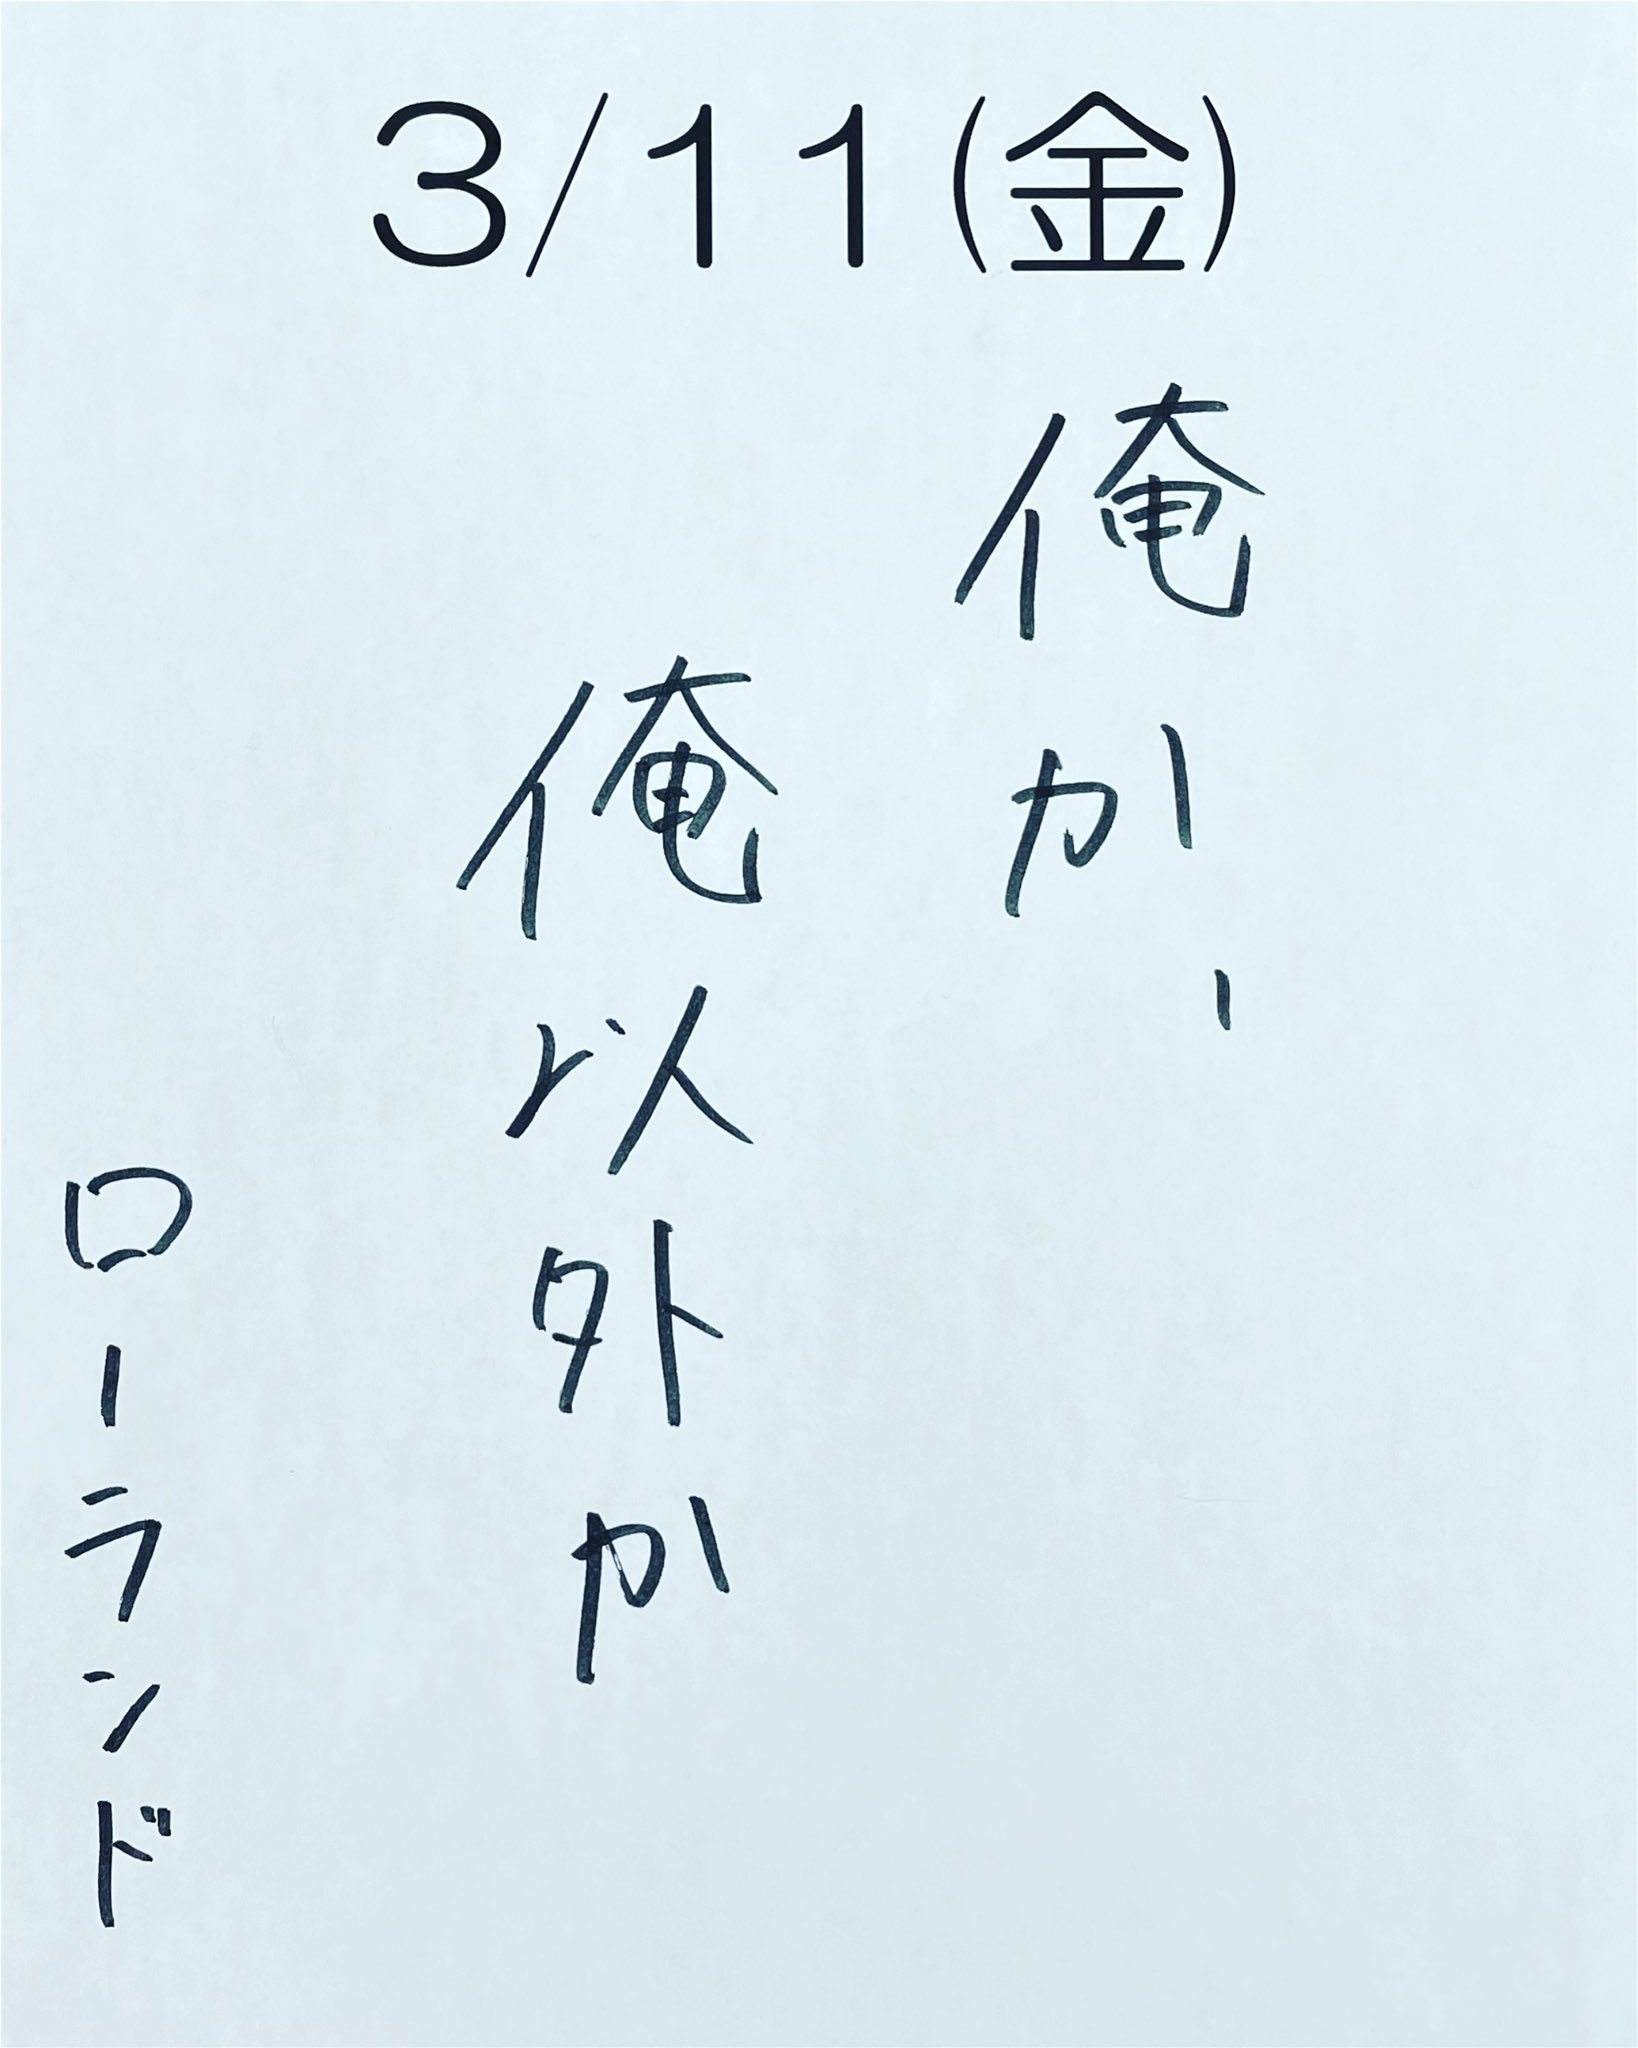 3/11(金)
俺か、
俺以外か
ローランド